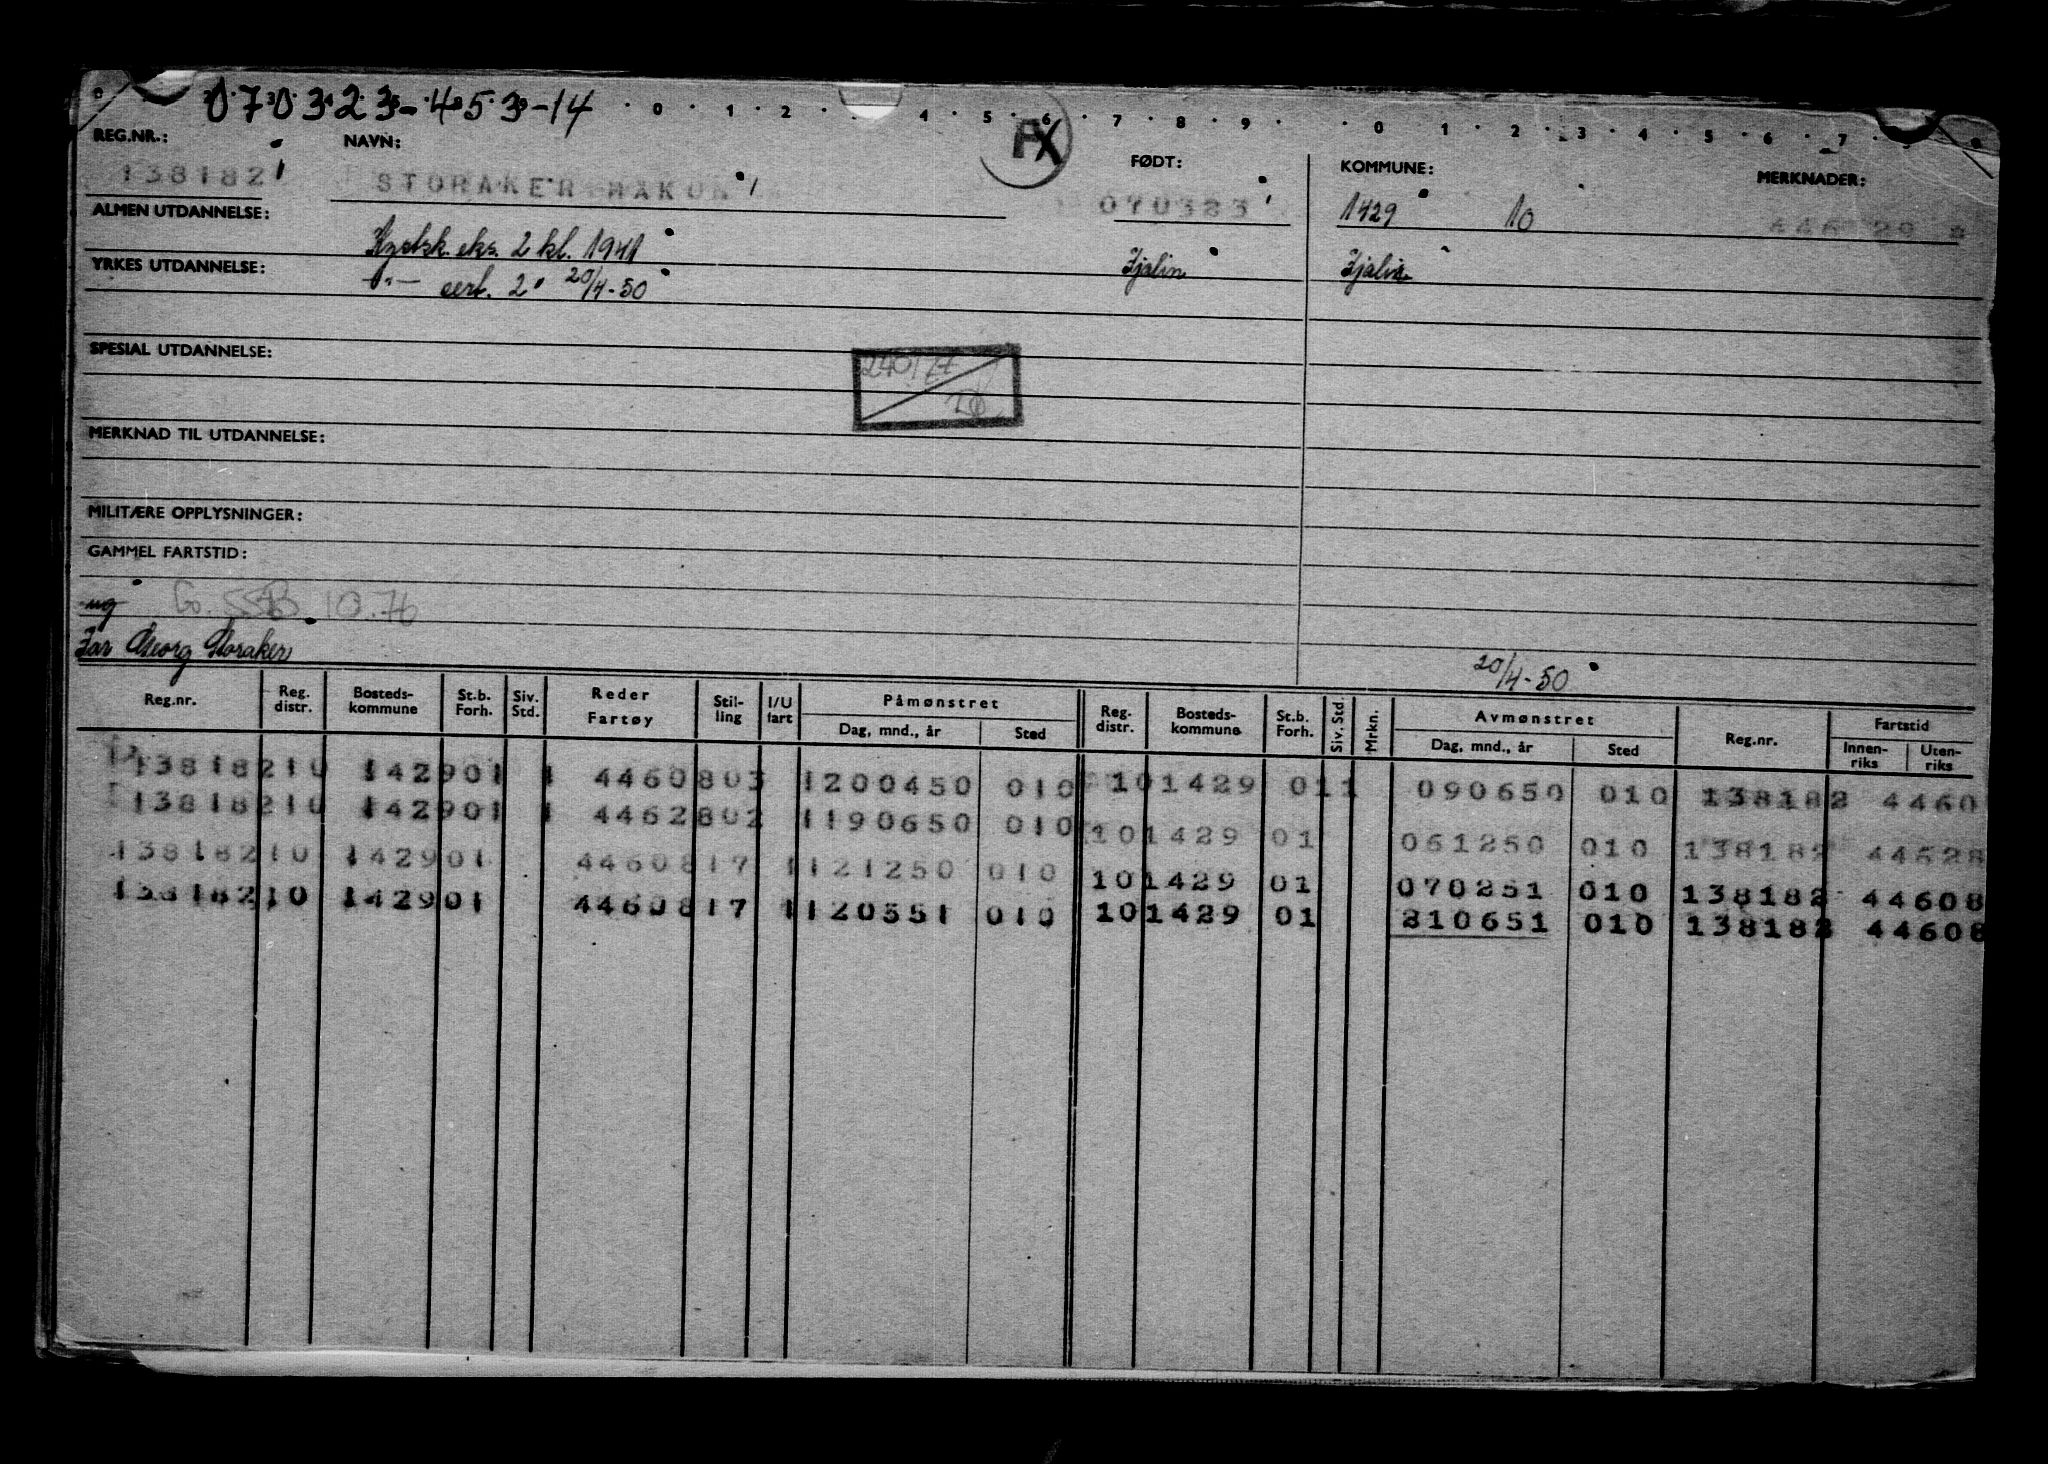 070323-453-14
0 1 2 4 5 6 7 8 9 0 1 2 3 4 5 6 7
REG.NR.: NAVN: FX FØDT: KOMMUNE: MERKNADER:
138182 STORAKER HÅKON 070323 1429 10
ALMEN UTDANNELSE:
Kystsk. eks. 2 kl. 1941 Fjalir Fjaler
YRKES UTDANNELSE:
-"- cert. 2" 20/4-50
SPESIAL UTDANNELSE:
MERKNAD TIL UTDANNELSE:
MILITÆRE OPPLYSNINGER:
GAMMEL FARTSTID:
ug 10.76
Far Georg Storaker
20/4-50
Reg.nr. Reg. distr. Bosteds-kommune St.b. Forh. Siv. Std. Reder Fartøy Stil-ling I/U fart Påmønstret Dag, mnd., år Sted Reg. distr. Bosteds-kommune St.b. Forh. Siv. Std. Mrkn. Avmønstret Dag, mnd., år Sted Reg.nr. Fartstid Innen-riks Uten-riks
138182 10 1429 01 1 4460 803 1 200450 010 10 1429 01 1 090650 010 138182 4460
138182 10 1429 01 1 4462 802 1 190650 010 10 1429 01 061250 010 138182 44628
138182 10 1429 01 4460 817 1 121250 010 10 1429 01 070251 010 138182 44608
138182 10 1429 01 4460 817 1 120351 010 10 1429 01 210651 010 138182 44608